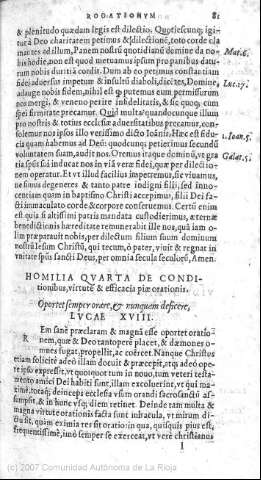 ROGATIONVM 81
& plenitudo quædam legis est dilectio. Quotiescunq; igi-
tur à Deo charitatem petimus & dilectionẽ, toto corde cla
mantes ad illum, Panem nostrũ quotidianũ domine da no-
bis hodie, non est quod metuamus ipsum pro panibus datu-
rum nobis duritiã cordis. Dum ab eo petimus constantiam
fidei aduersus impetum & insultũ diaboli, dicẽtes, Domine,
adauge nobis fidem, nihil est ꝙ putemus eum permissurum
nos mergi, & veneno perire infidelitatis, & sic quoq; cum
spei firmitate precamur. Quid multa? quandocunque illum
pro nostris & totius ecclesiæ aduersitatibus precamur, con-
solemur nos ipsos illo verissimo dicto Ioãnis, Hæc est fidu-
cia quam habemus ad Deũ: quodcunq; petierimus secundũ
voluntatem suam, audit nos. Oremus itaque dominũ, vt gra
tia spũs sui inducat nos in verã veræ fidei, quæ per dilectio-
nem operatur. Et vt illud facilius impetremus, sic viuamus,
ne simus degeneres & tanto patre indigni filij, sed inno-
centiam quam in baptismo Christi accepimus, filij Dei fa-
cti immaculato corde & corpore conseruemus. Certũ enim
est quia si altissimi patris mandata custodierimus, æternæ
benedictionis hæreditate remunerabit ille nos, quã iam o-
lim præparauit nobis, per dilectum filium suum dominum
nostrũ Iesum Christũ, qui tecum, ô pater, viuit & regnat in
vnitate spũs sancti Deus, per omnia secula seculorũ, Amen.
Mat. 6.
Luc. 17.
1. Ioan. 5.
Galat. 5.
HOMILIA QVARTA DE CONDI-
tionibus, virtute & efficacia piæ orationis.
Oportet semper orare, & nunquam deficere,
LVCAE XVIII.
REm sanè præclaram & magnã esse oportet oratio
nem, quæ & Deo tantopere placet, & dæmones o-
mnes fugat, propellit, ac coërcet. Nanque Christus
etiam solicitè adeo illam docuit & præcepit, atq; adeò ope-
re ipso expressit, vt quotquot tum in nouo, tum veteri testa-
mento amici Dei habiti sunt, illam excoluerint, vt qui ma-
ximè, totaq; deinceps ecclesia vsum orandi sacrosanctũ as-
sumpsit, & in hunc vsq; diem retinet. Deinde tam multa &
magna virtute orationis facta sunt miracula, vt mirum di-
ctu sit, quàm eximia res sit oratio in qua, quisquis pius est,
frequentissimè, imò semper se exerceat, vt verè christianos
l
(c) 2007 Comunidad Autónoma de La Rioja